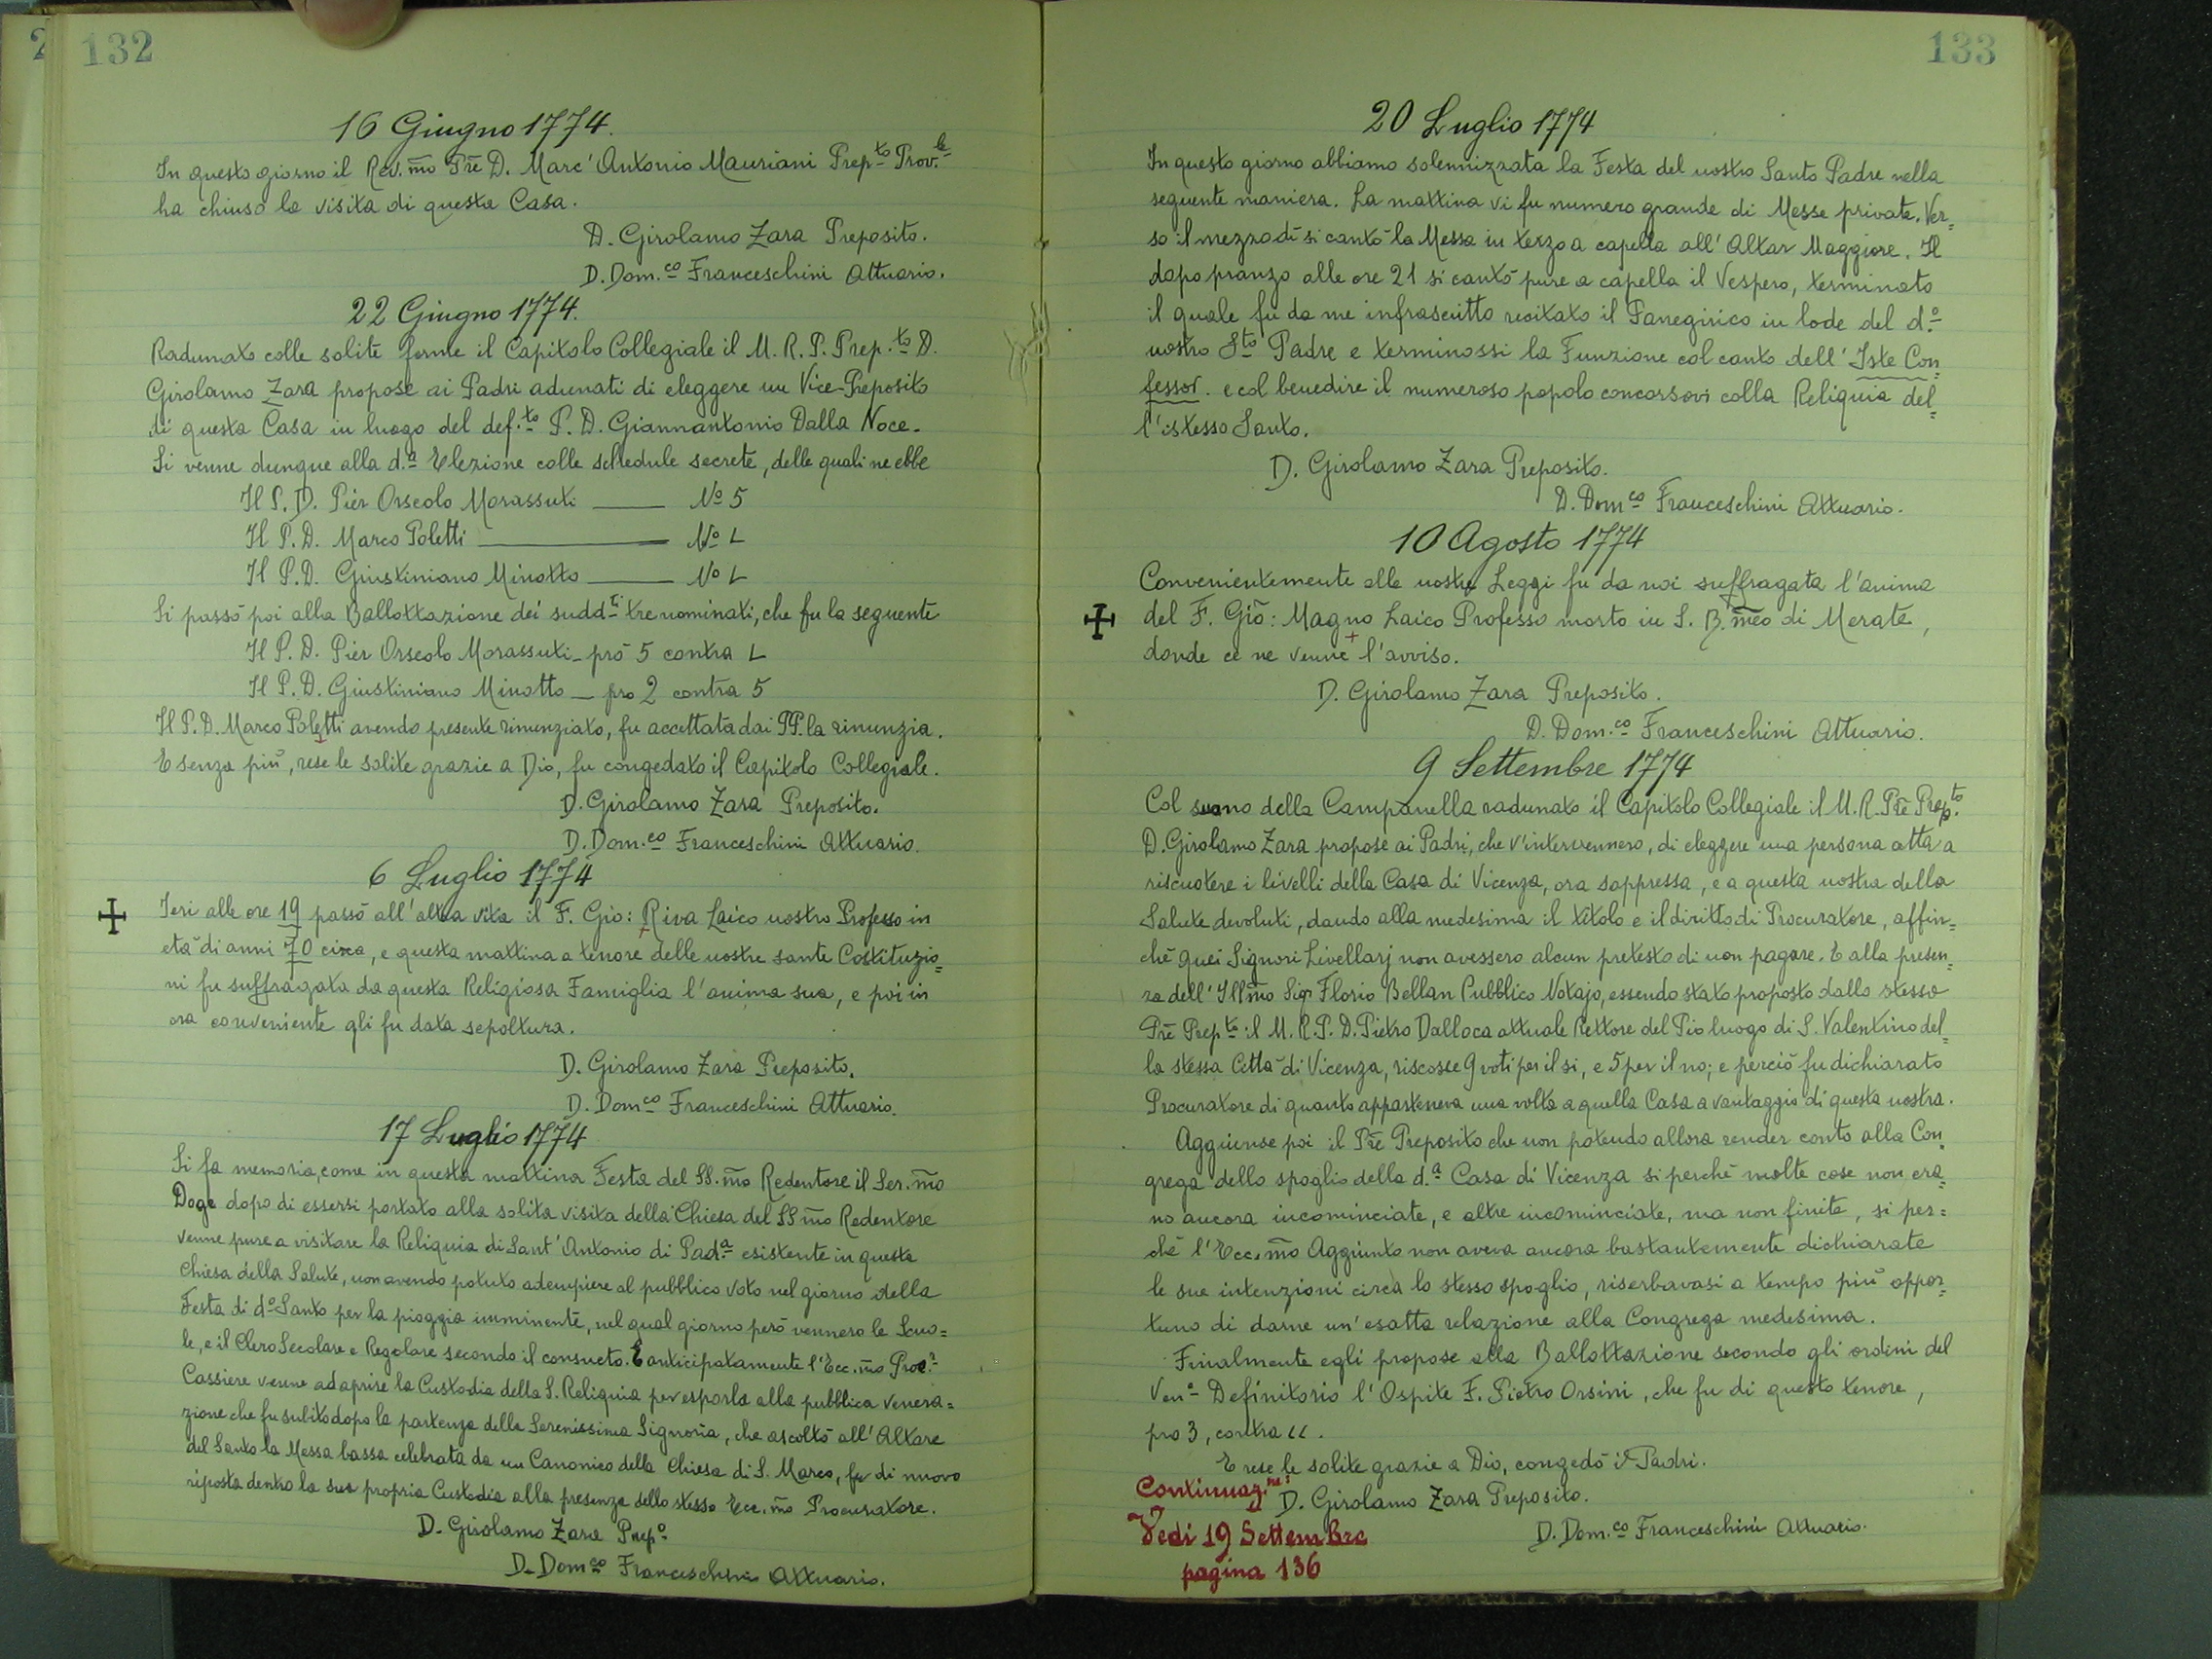 2
132
16 Giugno 1774.
In questo giorno il Rev.mo Pre D. Marc' Antonio Mauriani Prep.to Prov.le
ha chiuso la visita di questa Casa.
D. Girolamo Zara Preposito.
D. Dom.co Franceschini Attuario.
22 Giugno 1774.
Radunato colle solite forme il Capitolo Collegiale il M. R. P. Prep.to D.
Girolamo Zara propose ai Padri adunati di eleggere un Vice-Preposito
di questa Casa in luogo del def.to P. D. Giannantonio Dalla Noce.
Si venne dunque alla d.a Elezione colle schedule secrete, delle quali ne ebbe
Il P. D. Pier Orseolo Morassuti —— No 5
Il P. D. Marco Poletti —— No 1
Il P. D. Giustiniano Minotto —— No 1
Si passò poi alla Ballottazione dei sudd.ti tre nominati, che fu la seguente
Il P. D. Pier Orseolo Morassuti - prò 5 contra 1
Il P. D. Giustiniano Minotto — pro 2 contra 5
Il P. D. Marco Poletti avendo presente rinunziato, fu accettata dai PP. la rinunzia.
E senza più, rese le solite grazie a Dio, fu congedato il Capitolo Collegiale.
D. Girolamo Zara Preposito.
D. Dom.co Franceschini Attuario.
6 Luglio 1774
Ieri alle ore 19 passò all'altra vita il F. Gio: Riva Laico nostro Professo in
età di anni 70 circa, e questa mattina a tenore delle nostre sante Costituzio=
ni fu suffragata da questa Religiosa Famiglia l'anima sua, e poi in
ora conveniente gli fu data sepoltura.
D. Girolamo Zara Preposito.
D. Dom.co Franceschini Attuario.
17 Luglio 1774
Si fa memoria, come in questa mattina Festa del SS.mo Redentore il Ser.mo
Doge dopo di essersi portato alla solita visita della Chiesa del SS.mo Redentore
venne pure a visitare la Reliquia di Sant'Antonio di Pad.a esistente in questa
Chiesa della Salute, non avendo potuto adempiere al pubblico Voto nel giorno della
Festa di d.o Santo per la pioggia imminente, nel qual giorno però vennero le Scuo=
le, e il Clero Secolare e Regolare secondo il consueto. E anticipatamente l'Ecc.mo Proc.r
Cassiere venne ad aprire la Custodia della S. Reliquia per esporla alla pubblica venera=
zione che fu subito dopo la partenza della Serenissima Signoria, che ascoltò all'Altare
del Santo la Messa bassa celebrata da un Canonico della Chiesa di S. Marco, fu di nuovo
riposta dentro la sua propria Custodia alla presenza dello stesso Ecc.mo Procuratore.
D. Girolamo Zara Prep.o
D. Dom.co Franceschini Attuario.
133
20 Luglio 1774
In questo giorno abbiamo solennizzata la Festa del nostro Santo Padre nella
seguente maniera. La mattina vi fu numero grande di Messe private. Ver=
so il mezzodì si cantò la Messa in terzo a capella all'Altar Maggiore. Il
dopo pranzo alle ore 21 si cantò pure a capella il Vespero, terminato
il quale fu da me infrascritto recitato il Panegirico in lode del d.o
nostro S.to Padre e terminossi la Funzione col canto dell'Iste Con=
fessor. e col benedire il numeroso popolo concorsovi colla Reliquia del=
l'istesso Santo.
D. Girolamo Zara Preposito.
D. Dom.co Franceschini Attuario.
10 Agosto 1774
Convenientemente alle nostre Leggi fu da noi suffragata l'anima
del F. Gio: Magno Laico Professo morto in S. B.meo di Merate,
donde ce ne venne l'avviso.
D. Girolamo Zara Preposito.
D. Dom.co Franceschini Attuario.
9 Settembre 1774
Col suono della Campanella radunato il Capitolo Collegiale il M. R. Pre Prep.to
D. Girolamo Zara propose ai Padri, che v'intervennero, di eleggere una persona atta a
riscuotere i livelli della Casa di Vicenza, ora soppressa, e a questa nostra della
Salute devoluti, dando alla medesima il titolo e il diritto di Procuratore, affin=
chè quei Signori Livellarj non avessero alcun pretesto di non pagare. E alla presen=
za dell'Ill.mo Sig.r Florio Bellan Pubblico Notajo, essendo stato proposto dallo stesso
Pre Prep.to il M. R. P. D. Pietro Dalloca attuale Rettore del Pio luogo di S. Valentino del=
la stessa Città di Vicenza, riscosse 9 voti per il si, e 5 per il no; e perciò fu dichiarato
Procuratore di quanto apparteneva una volta a quella Casa a vantaggio di questa nostra.
Aggiunse poi il Pre Preposito che non potendo allora render conto alla Con=
grega dello spoglio della d.a Casa di Vicenza si perchè molte cose non era=
no ancora incominciate, e altre incominciate, ma non finite, si per=
chè l'Ecc.mo Aggiunto non aveva ancora bastantemente dichiarate
le sue intenzioni circa lo stesso spoglio, riserbavasi a tempo più oppor=
tuno di darne un'esatta relazione alla Congrega medesima.
Finalmente egli propose alla Ballottazione secondo gli ordini del
Ven.o Definitorio l'Ospite F. Pietro Orsini, che fu di questo tenore,
pro 3, contra 11.
E rese le solite grazie a Dio, congedò i Padri.
Continuaz.ne:
D. Girolamo Zara Preposito.
Vedi 19 Settembre
D. Dom.co Franceschini Attuario.
pagina 136